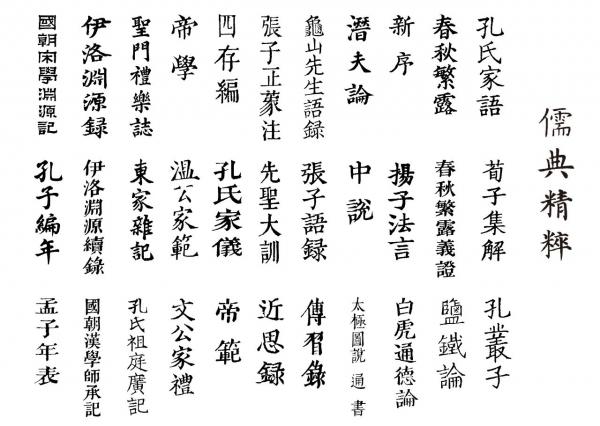 儒典精粹
孔氏家語
荀子集解
孔叢子
春秋繁露
春秋繁露義證
鹽鐵論
新序
揚子法言
白虎通德論
潛夫論
中說
太極圖說 通書
龜山先生語録
張子語録
傳習錄
張子正蒙注
先聖大訓
近思録
四存編
孔氏家儀
帝範
帝學
溫公家範
文公家禮
聖門禮樂誌
東家雜記
孔氏祖庭廣記
伊洛淵源録
伊洛淵源續錄
國朝漢學師承記
國朝宋學淵源記
孔子編年
孟子年表